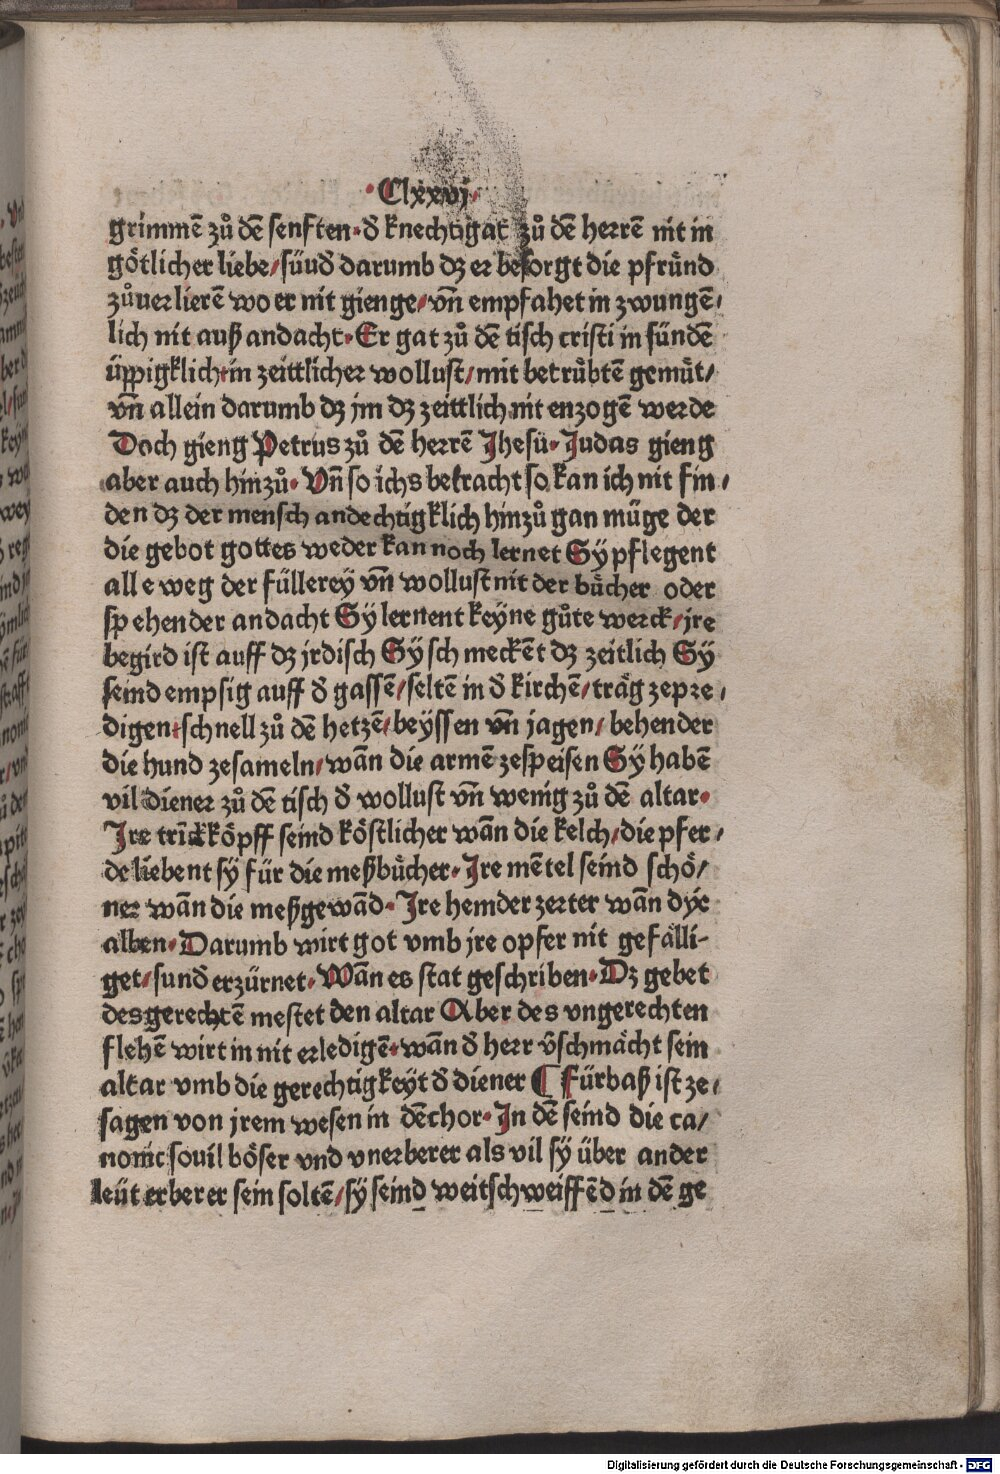 ·Clxxvj·
grimmē zů dē senften·d̕ knechtigat zů dē herrē nit in
götlicher liebe/süud̕ darumb dꝫ er besorgt die pfrůnd
zůuerlierē wo er nit gienge/vn̄ empfahet in zwungē/
lich nit auß andacht·Er gat zů dē tisch cristi in sündē
üppigklich in zeittlicher wollust/mit betrůbtē gemüt/
vn̄ allein darumb dꝫ jm dꝫ zeittlich nit enzogē werde
Doch gieng Petrus zů dē herrē Jhesü·Judas gieng
aber auch hinzů·Vn̄ so ichs betracht so kan ich nit fin/
den dꝫ der mensch andechtigklich hinzů gan müge der
die gebot gottes weder kan noch lernet Sy pflegent
alle weg der füllerey vn̄ wollust nit der bücher oder
spehender andacht Sy lernent keyne gůte werck/jre
begird ist auff dꝫ jrdisch Sy schmeckēt dꝫ zeitlich Sy
seind empsig auff d̕ gassē/seltē in d̕ kirchē/träg zepre/
digen/schnell zů dē hetzē/beyssen vn̄ jagen/behender
die hund zesameln/wān die armē zespeisen Sy habē
vil diener zů dē tisch d̕ wollust vn̄ wenig zů dē altar·
Jre trīckköpff seind köstlicher wān die kelch/die pfer/
de liebent sy für die meßbücher·Jre mētel seind schö/
ner wān die meßgewād·Jre hemder zerter wān dye
alben·Darumb wirt got vmb jre opfer nit gefälli-
get/sund̕ erzürnet·Wān es stat geschriben·Dꝫ gebet
des gerechtē mestet den altar Aber des vngerechten
flehē wirt in nit erledigē·wān d̕ herr v̄schmächt sein
altar vmb die gerechtigkeyt d̕ diener ¶ Fürbaß ist ze/
sagen von jrem wesen in dē chor·In dē seind die ca/
nonic souil böser vnd vnerberer als vil sy über ander
leüt erberer sein soltē/sy seind weitschweiffēd in dē ge
Digitalisierung gefördert durch die Deutsche Forschungsgemeinschaft - DFG